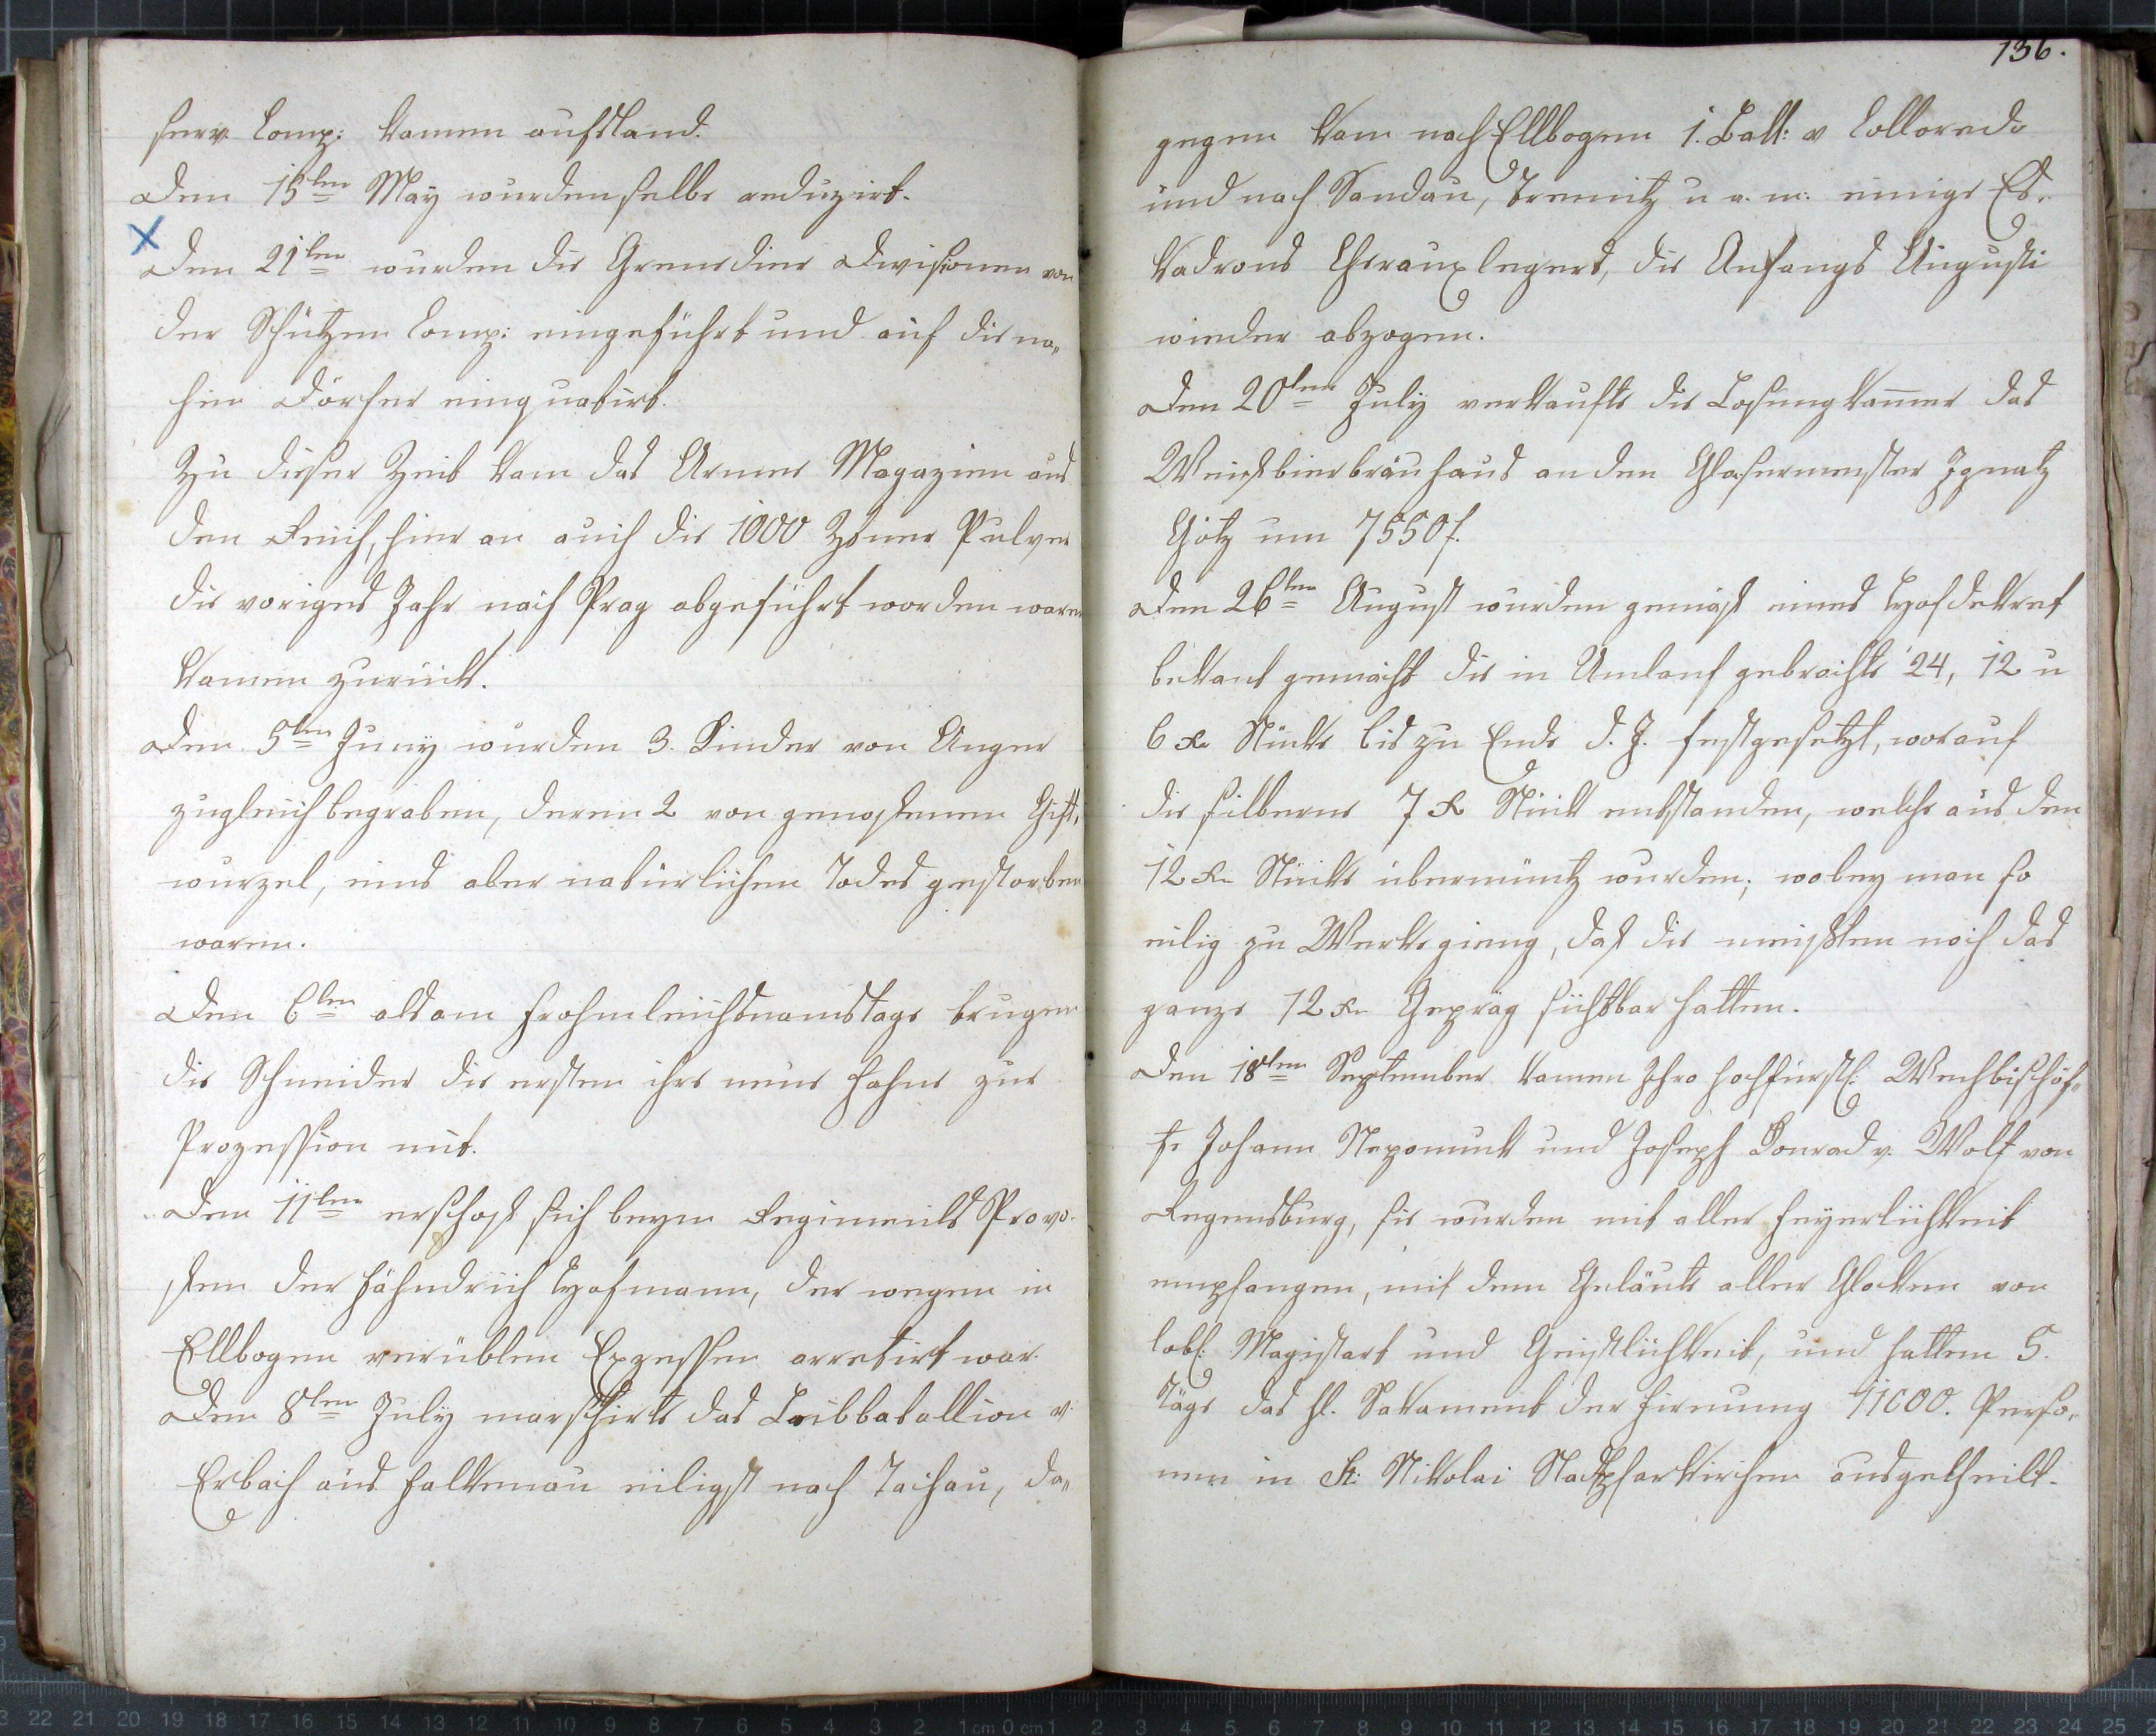 serv. Comp: kamen aufstand.
Den 15ten May wurden selbe reduzirt.
Den 21ten wurden die Grenedier Divisionen von
der Schützen Comp: eingeführt und auf die na„
hen Dörfer einquatirt.
Zu dieser Zeit kam das Armee Magazien aus
den Reich, hier an auch die 1000 Ztner Pulver
die voriges Jahr nach Prag abgeführt worden waren
kamen zurück.
Den 5ten Juny wurden 3. Kinder von Anger
zugleich begraben, deren 2 von genossenen Gift„
wurzel, eins aber natürlichen Todes gestorben
waren.
Den 6ten als am Frohnleichsnamstage trugen
die Schneider die ersten ihre neue Fahne zur
Prozession mit.
Den 11ten erschoß sich beym Regiments Provo„
sten der Fähndrich Hofmann, der wegen in
Ellbogen verübten Exzessen arretirt war.
Den 8ten July marschirte das Leibbatallion v.
Erbach aus Falkenau eiligst nach Tachau, da„
136.
gegen kam nach Ellbogen 1. Batt: v Colloredo
und nach Sandau, Tremitz u a. m: einige Es„
kadrons Chevauxlegers, die Anfangs Augusti
wieder abzogen.
Den 20ten July verkaufte die Losungkammer das
Weissbierbräuhaus an den Glasermeister Ignatz
Götz um 7550f.
Den 26ten August wurden gemäß eines Hofdekret
bekant gemacht die in Umlauf gebrachte 24, 12 u
6 xr Stücke bis zu Ende d. J. festgesetzt, worauf
die silberne 7 xr Stück entstanden, welche aus den
12 xr Stücke übermüntz wurden; wobey man so
eilig zu Werke gieng, daß die meisten noch das
ganze 12 xr Gepräg sichtbar hatten.
Den 18ten September kamen Ihro hochfürstl. Weihbischöf„
fe Johann Nepomuck und Joseph Konrad v. Wolf von
Regensburg, sie wurden mit aller Feyerlichkeit
empfangen, mit dem Geläute aller Glocken von
löbl. Magistart und Geistlichkeit, und hatten 5.
Täge das hl. Sakament der Firmung 11000. Perso„
nen in St: Nikolai Stadtpfarkirchen ausgetheilt.